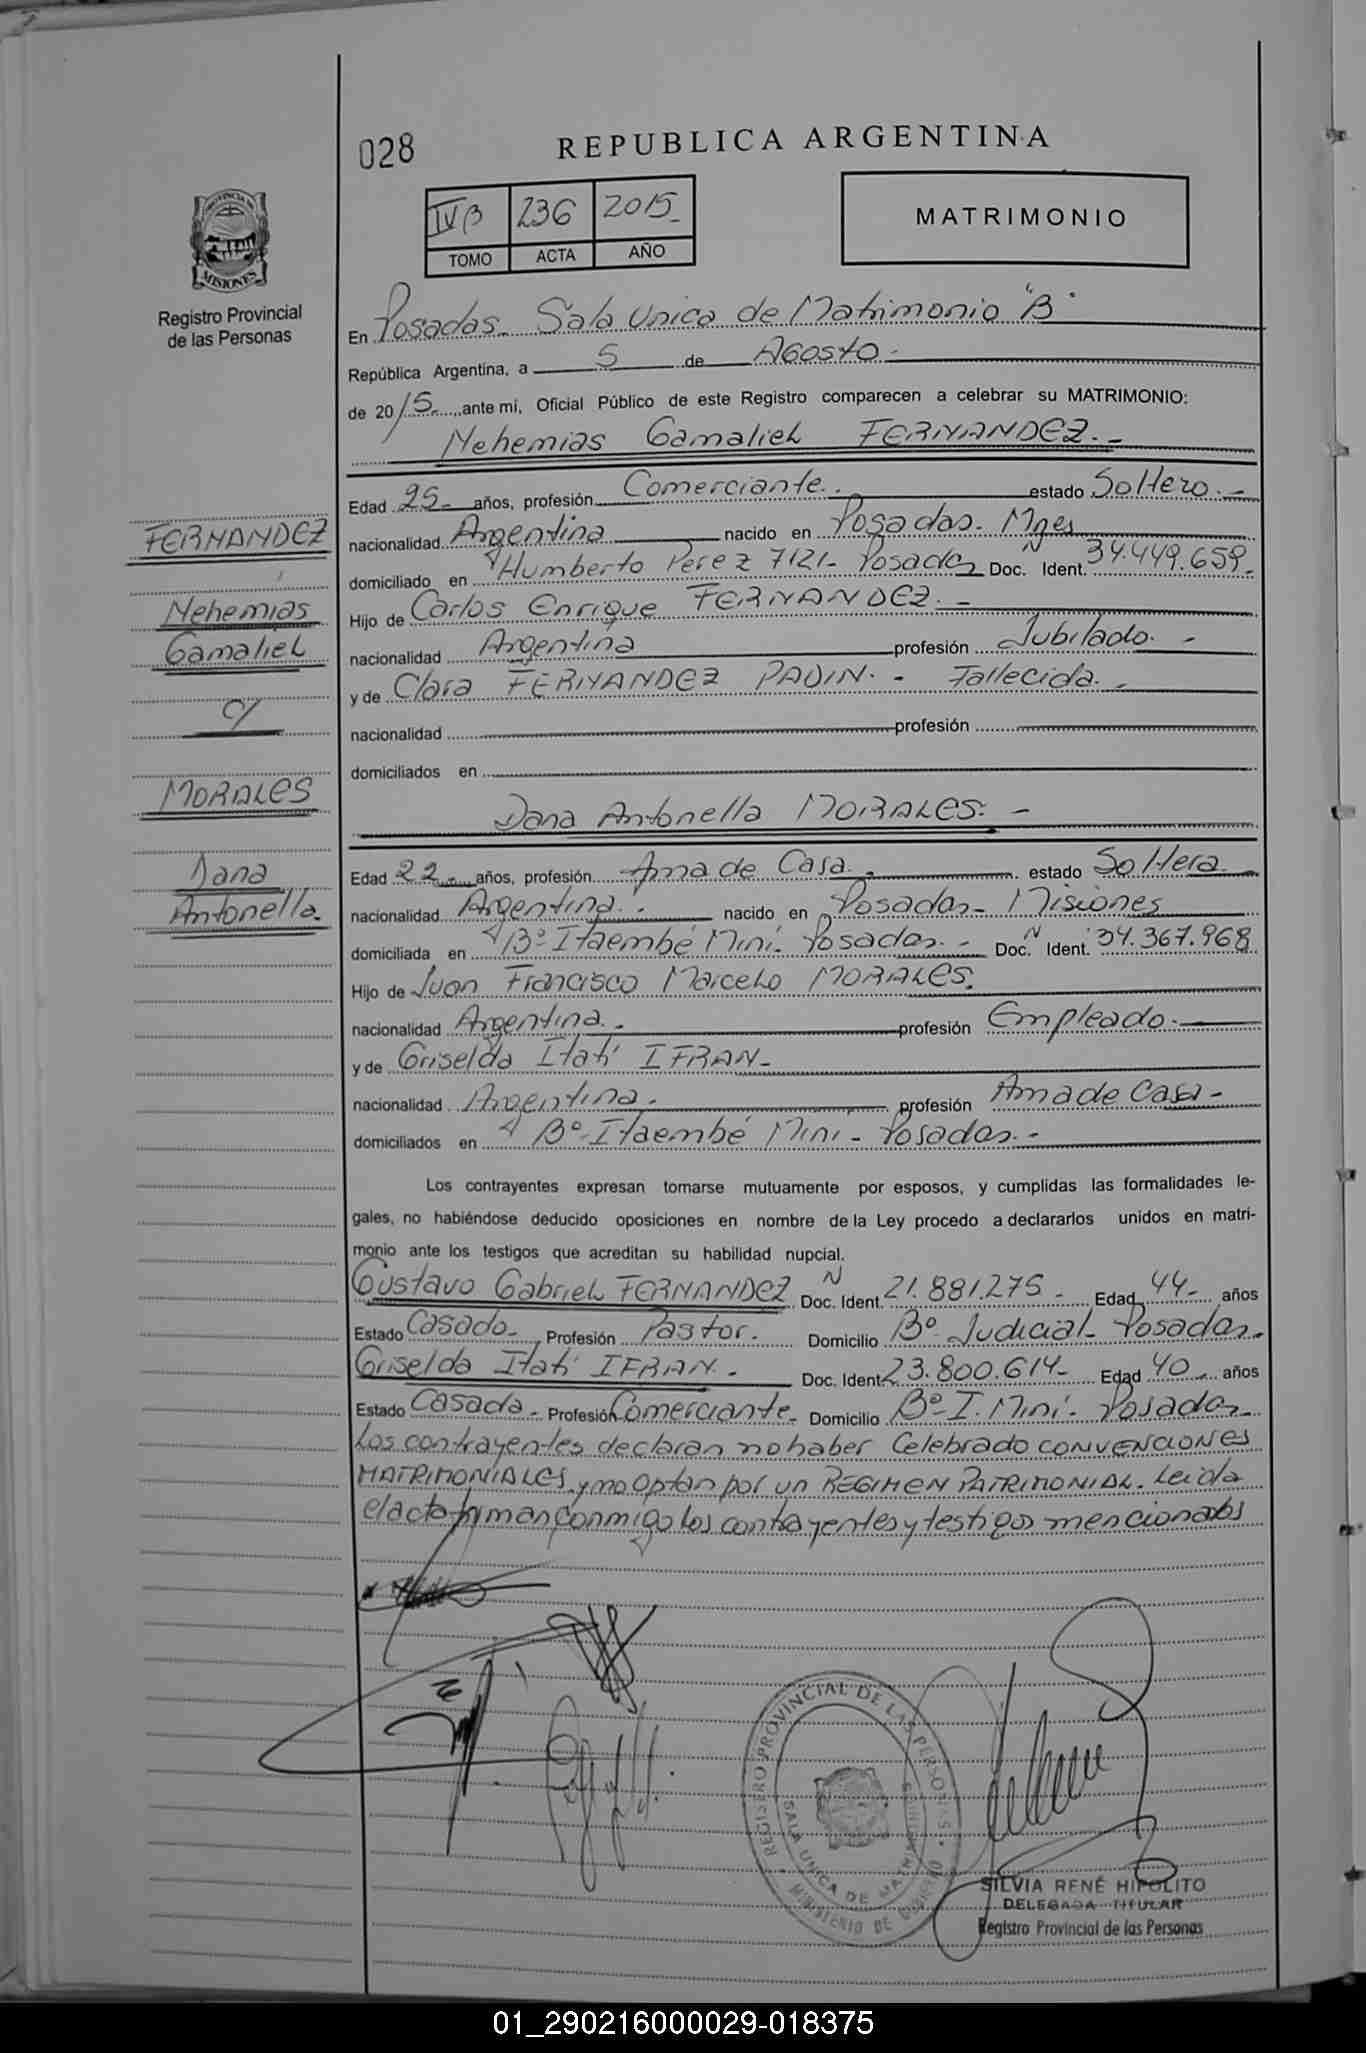 028
REPUBLICA ARGENTINA
IV B 236 2015
TOMO ACTA AÑO
MATRIMONIO
PROVINCIA DE
MISIONES
Registro Provincial
de las Personas
En Posadas. Sala Unica de Matrimonio "B"
República Argentina, a 5 de Agosto.-
de 2015 ante mi, Oficial Público de este Registro comparecen a celebrar su MATRIMONIO:
Nehemias Gamaliel FERNANDEZ.-
Edad 25- años, profesión Comerciante. estado Soltero.-
nacionalidad Argentina nacido en Posadas. Mnes
domiciliado en Humberto Perez 7121- Posadas Doc. N Ident. 34.449.659.
Hijo de Carlos Enrique FERNANDEZ.-
nacionalidad Argentina profesión Jubilado.-
y de Clara FERNANDEZ PADIN.- Fallecida.-
nacionalidad profesión
domiciliados en
Dana Antonella MORALES.-
Edad 22- años, profesión Ama de Casa. estado Soltera
nacionalidad Argentina. nacido en Posadas- Misiones
domiciliada en Bº Itaembé Miní- Posadas.- Doc. N Ident. 34.367.968
Hijo de Juan Francisco Marcelo MORALES.
nacionalidad Argentina.- profesión Empleado.-
y de Griselda Itatí IFRAN-
nacionalidad Argentina.- profesión Ama de Casa-
domiciliados en Bº-Itaembé Mini- Posadas.-
FERNANDEZ
Nehemias
Gamaliel
c/
MORALES
Dana
Antonella.
Los contrayentes expresan tomarse mutuamente por esposos, y cumplidas las formalidades le-
gales, no habiéndose deducido oposiciones en nombre de la Ley procedo a declararlos unidos en matri-
monio ante los testigos que acreditan su habilidad nupcial.
Gustavo Gabriel FERNANDEZ N Doc. Ident. 21.881.275- Edad 44- años
Estado Casado- Profesión Pastor. Domicilio Bº Judicial- Posadas.
Griselda Itatí IFRAN.- Doc. Ident 23.800.614- Edad 40 años
Estado Casada- Profesión Comerciante- Domicilio Bº-I. Miní- Posadas-
Los contrayentes declaran no haber Celebrado CONVENCIONES
MATRIMONIALES y no optan por un REGIMEN PATRIMONIAL. Leida
el acta firman conmigo los contrayentes y testigos mencionados
REGISTRO PROVINCIAL DE LAS PERSONAS
SALA UNICA DE MATRIMONIOS
MINISTERIO DE GOBIERNO
SILVIA RENÉ HIPOLITO
DELEGADA TITULAR
Registro Provincial de las Personas
01_290216000029-018375